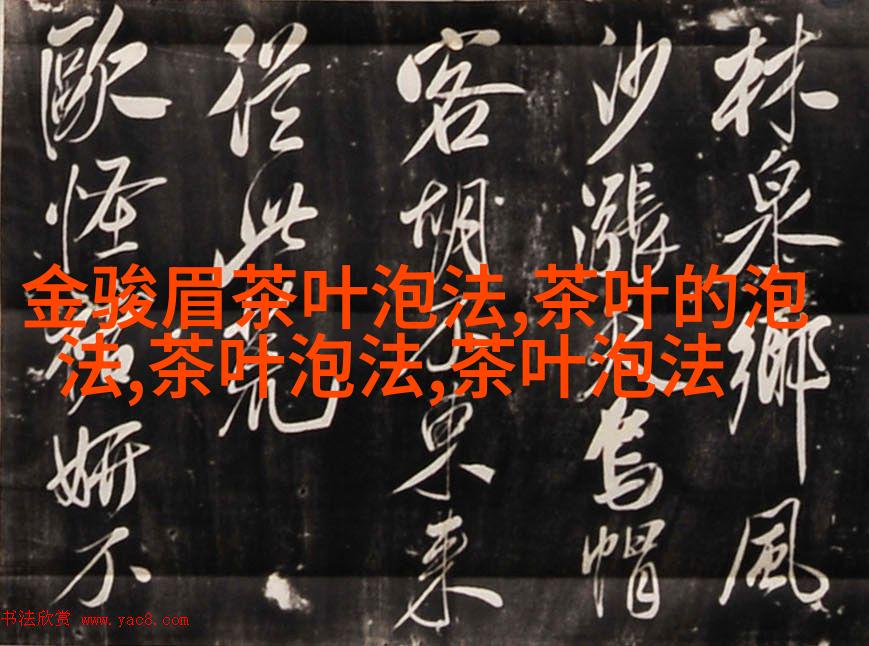 林泉鄉風
沙漲烏帽
客胡東來
從此荒
歐怪妍不
金骏眉茶叶泡法,茶叶的泡
法,茶叶泡法,茶叶泡法
书法欣赏 www.yac8.com